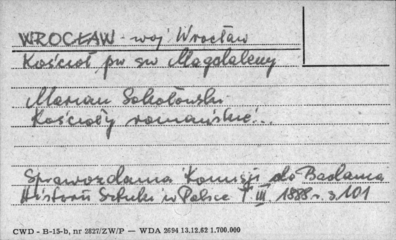 WROCŁAW - woj Wrocław
Kościół pw sw Magdaleny
Marian Sokołowski
Kościoły romańskie...
Sprawozdania Komisji do Badania
Historii Sztuki w Polsce T. III. 1888 r. s 101
CWD - B-15-b, nr 2827/ZW/P — WDA 2694 13.12.62 1.700.000